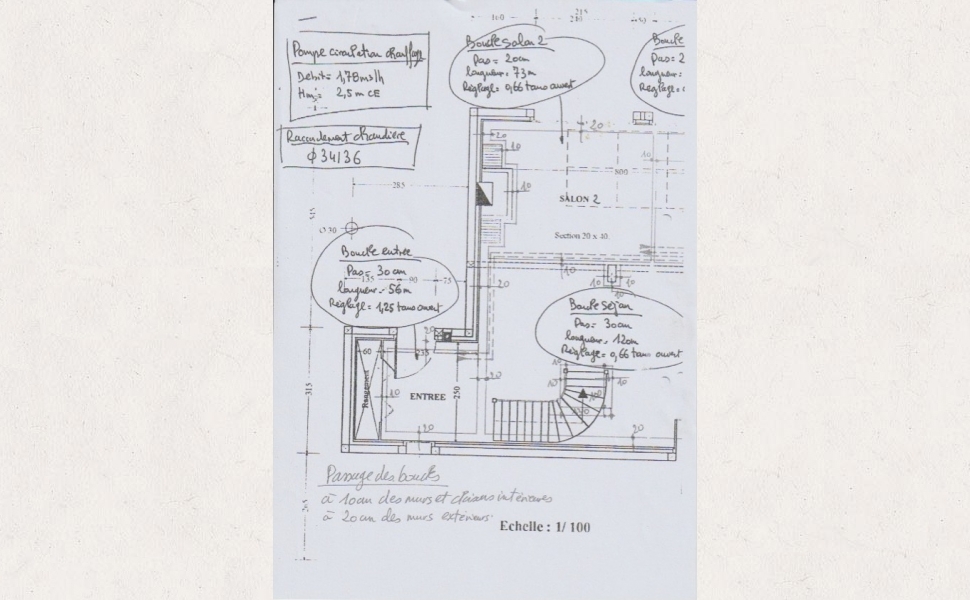 160
215
210
50
Pompe circulation chauffage
Débit = 1,78 m3/h
Hm = 2,5 m CE
Raccordement chaudière
φ 34/36
Boucle Salon 2
Pas = 20cm
longueur = 73m
Réglage = 0,66 tours ouvert
Boucle
Pas = 2
longueur =
Réglage =
20
20
10
10
10
800
285
SALON 2
Section 20 x 40
∅30
Boucle entrée
Pas = 30 cm
135
90
75
longueur = 56m
Réglage = 1,25 tours ouvert
10
20
10
10
10
Boucle Séjour
Pas = 30cm
longueur = 120m
Réglage = 0,66 tours ouvert
20
60
235
20
10
10
10
Rangement
ENTREE
250
315
20
20
Passage des boucles
à 10cm des murs et cloisons intérieures
à 20cm des murs extérieurs
Echelle : 1/ 100